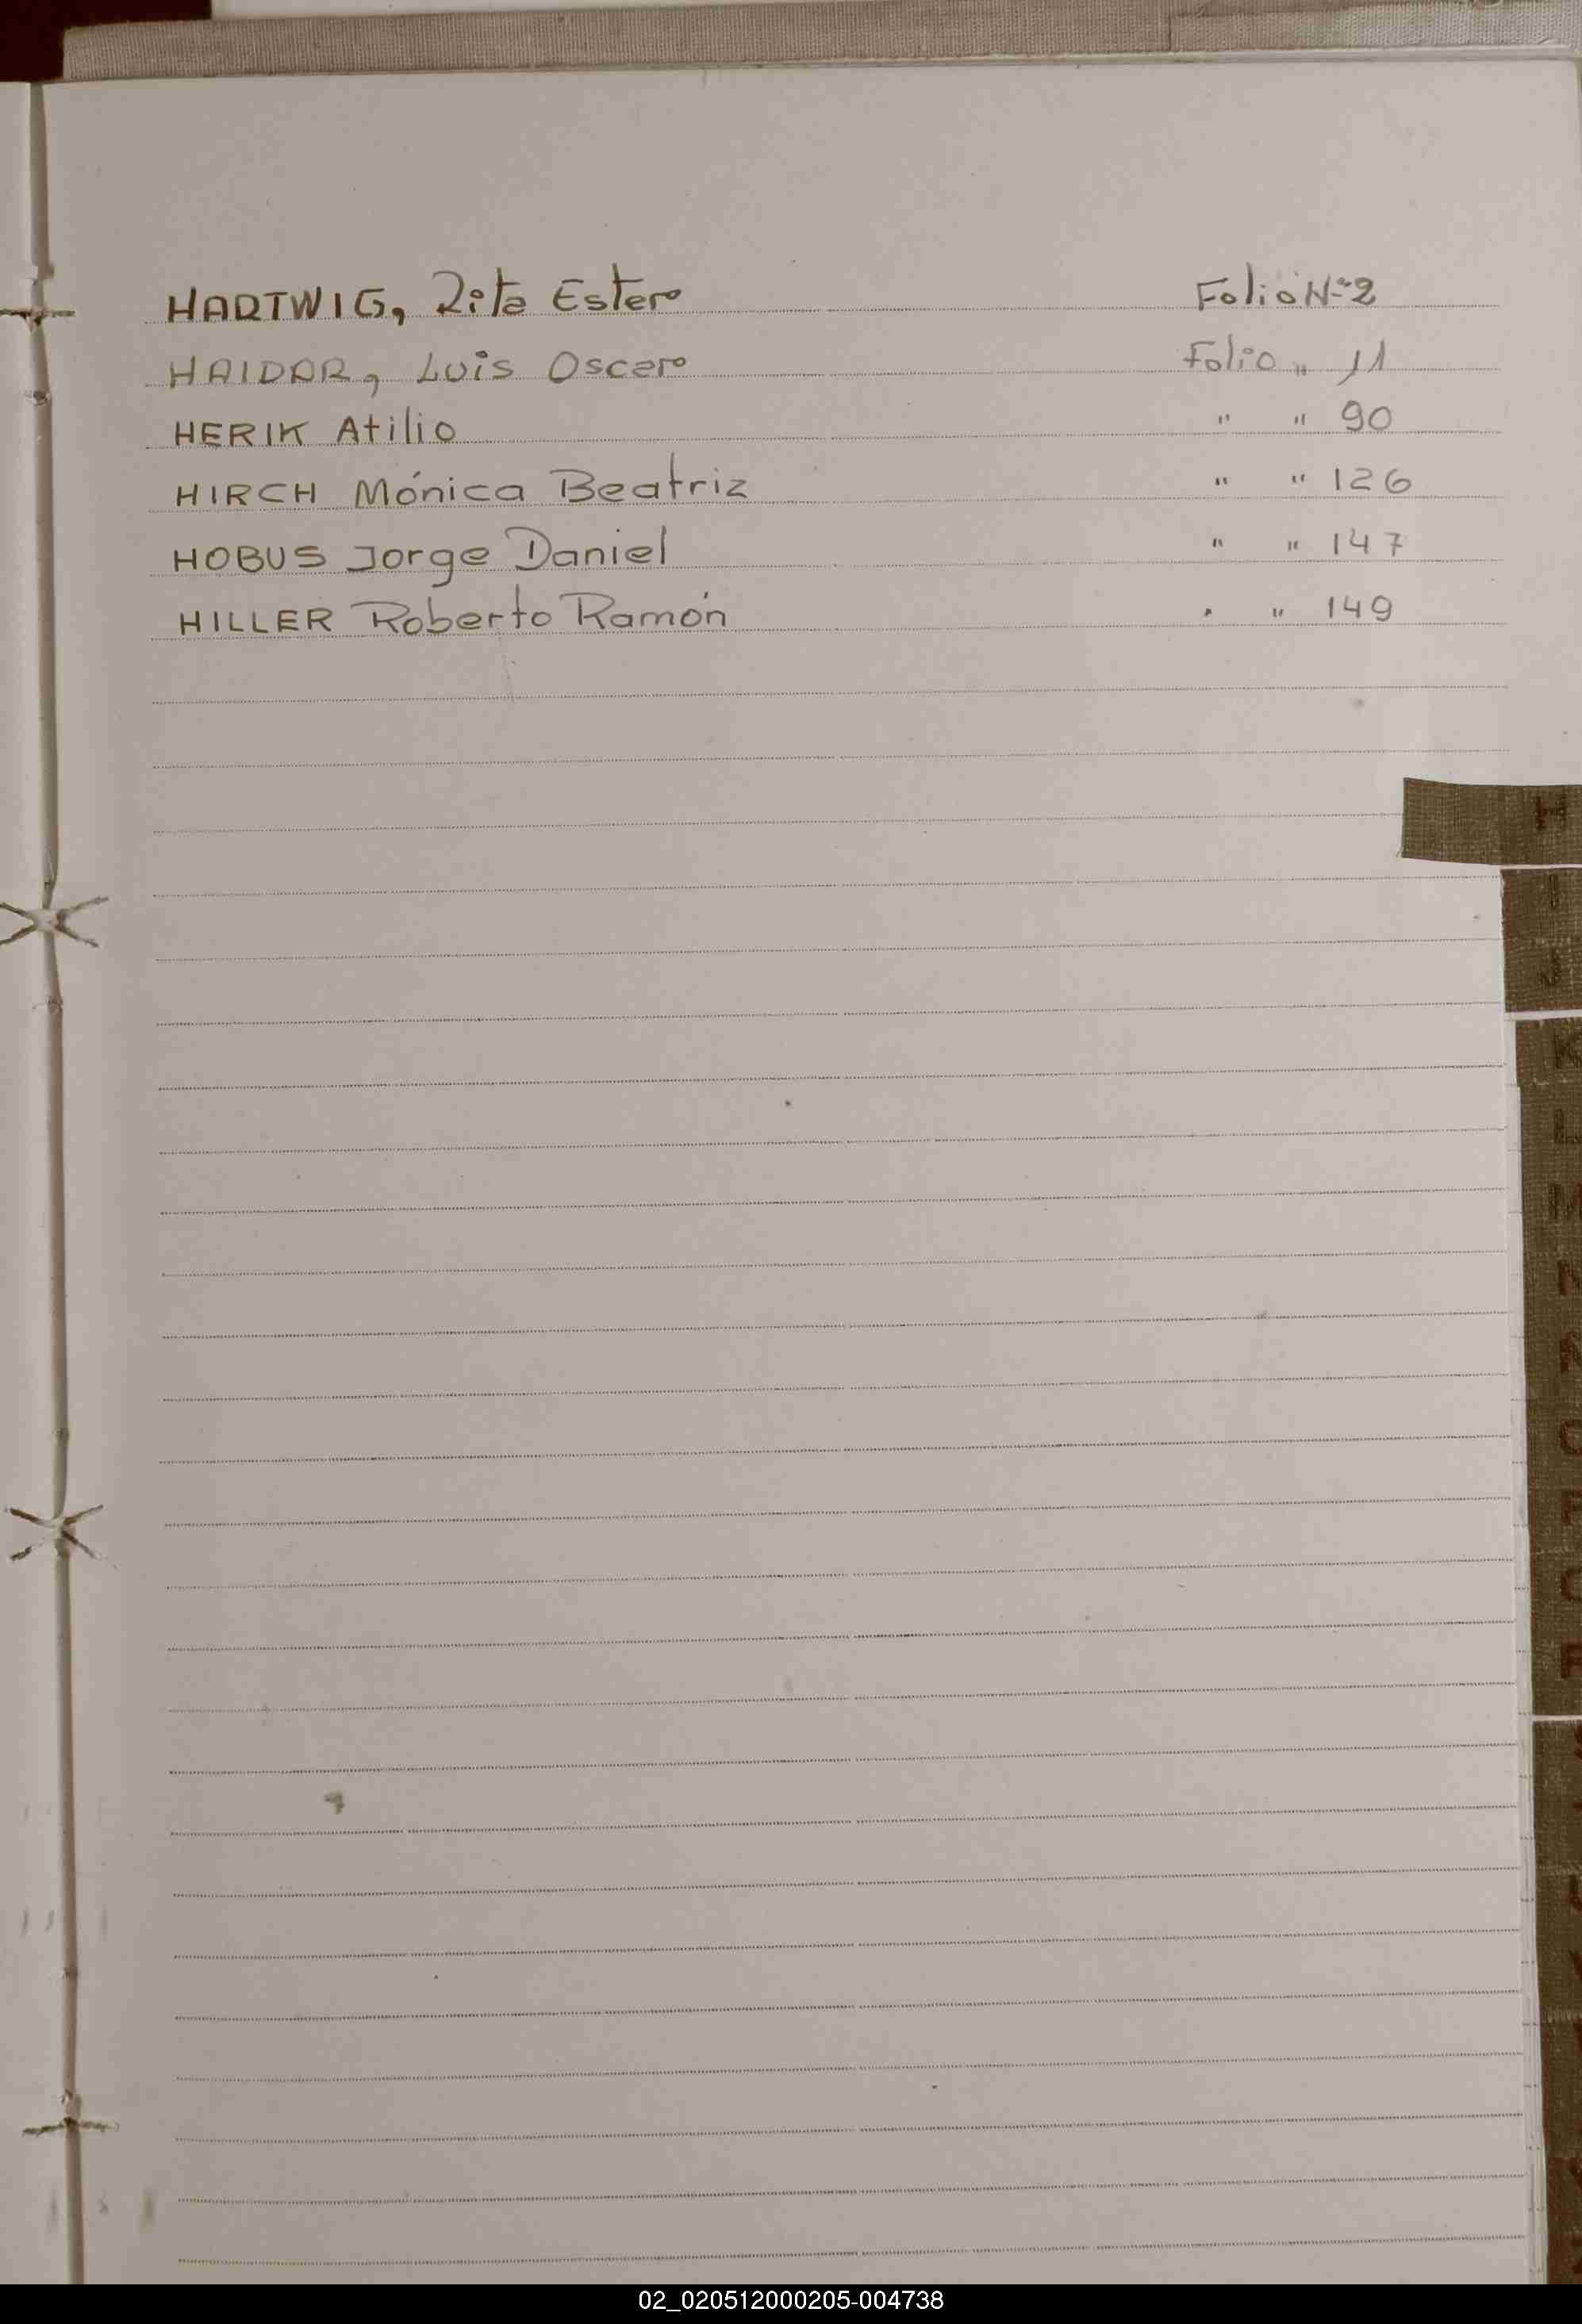 HARTWIG, Rita Ester Folio Nº 2
HAIDAR, Luis Oscar Folio " 11
HERIK Atilio " " 90
HIRCH Mónica Beatriz " " 126
HOBUS Jorge Daniel " " 147
HILLER Roberto Ramón " " 149
H
I
J
K
L
M
N
O
P
02_020512000205-004738